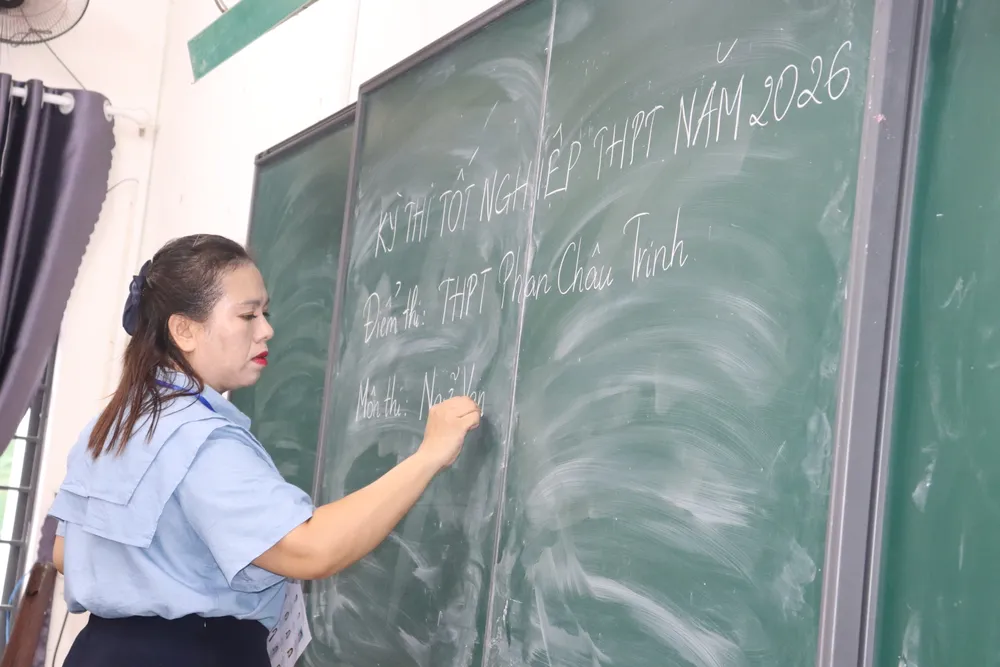 KỲ THI TỐT NGHIỆP THPT NĂM 2026
Điểm thi: THPT Phan Châu Trinh
Môn thi: Ngữ Văn